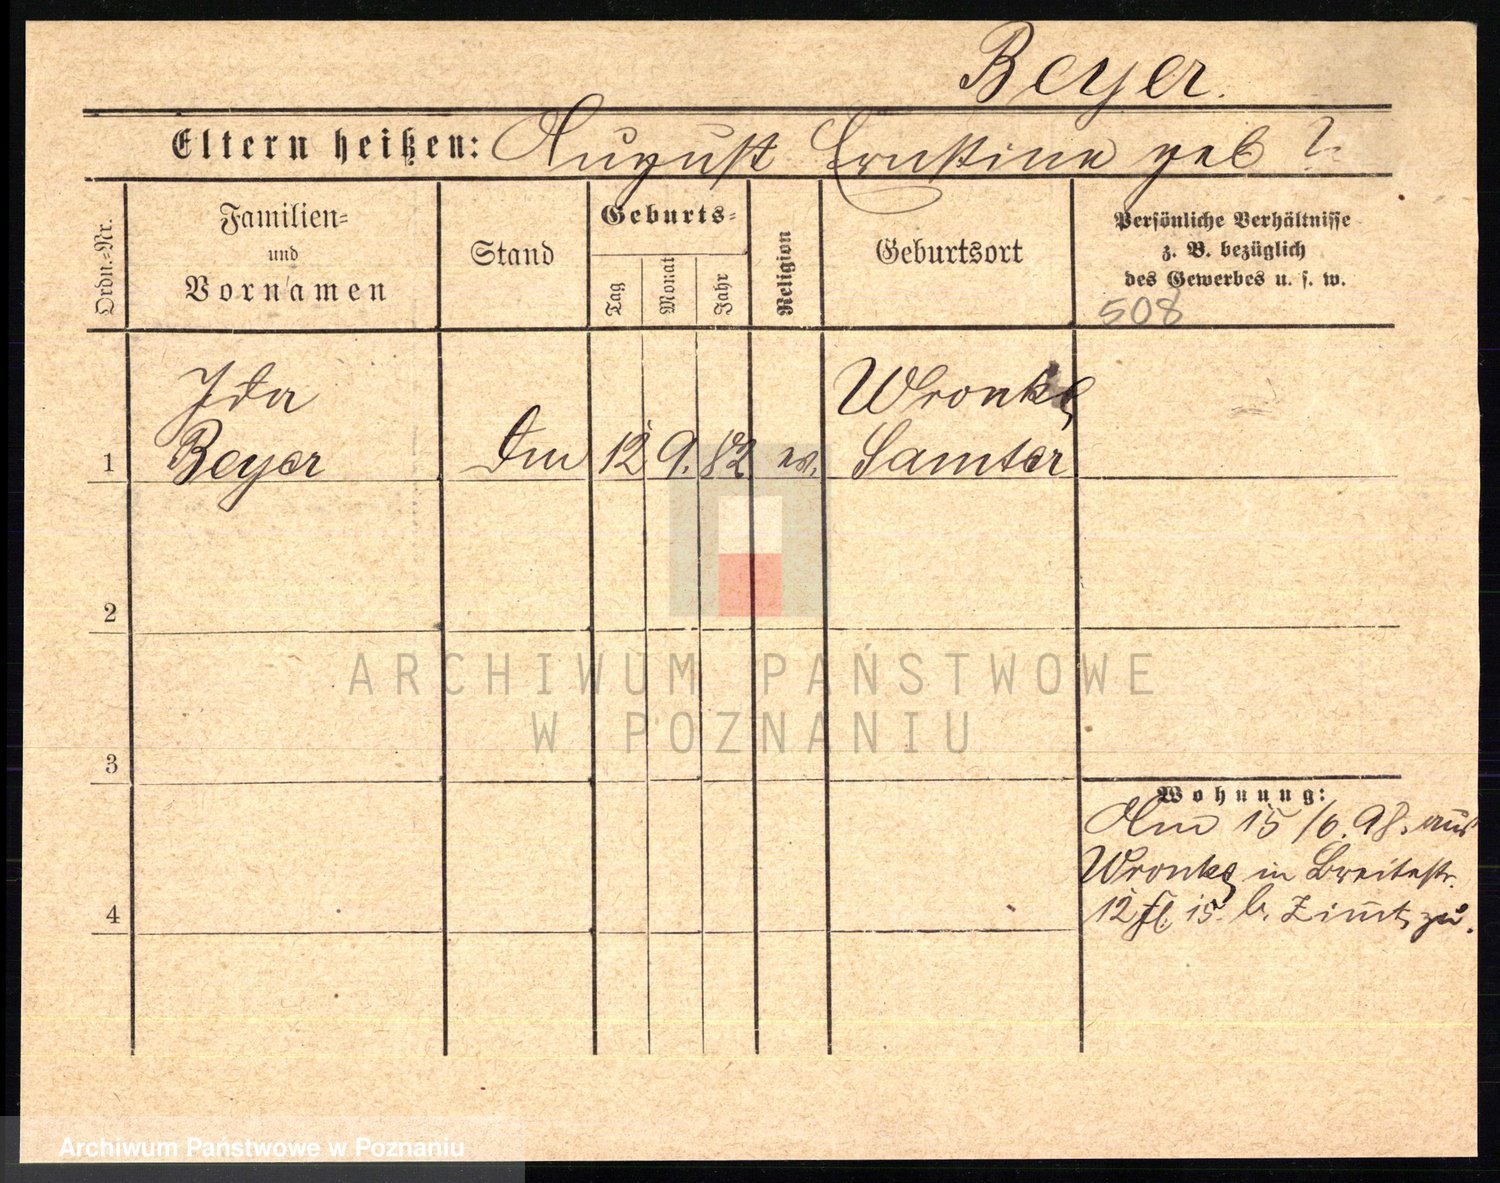 Beyer.
Eltern heißen: August Ernstine geb ?.
Ordn.-Nr.
Familien-
und
Vornamen
Stand
Geburts-
Tag
Monat
Jahr
Religion
Geburtsort
Persönliche Verhältnisse
z. B. bezüglich
des Gewerbes u. s. w.
508
Ida
Wronke
1 Beyer 12 9. 82 ev. Samter
2
ARCHIWUM PAŃSTWOWE
W POZNANIU
3
Wohnung:
15/6. 98. aus
Wronke in Breitestr.
4
12 15. b. Zimt, zu.
Archiwum Państwowe w Poznaniu